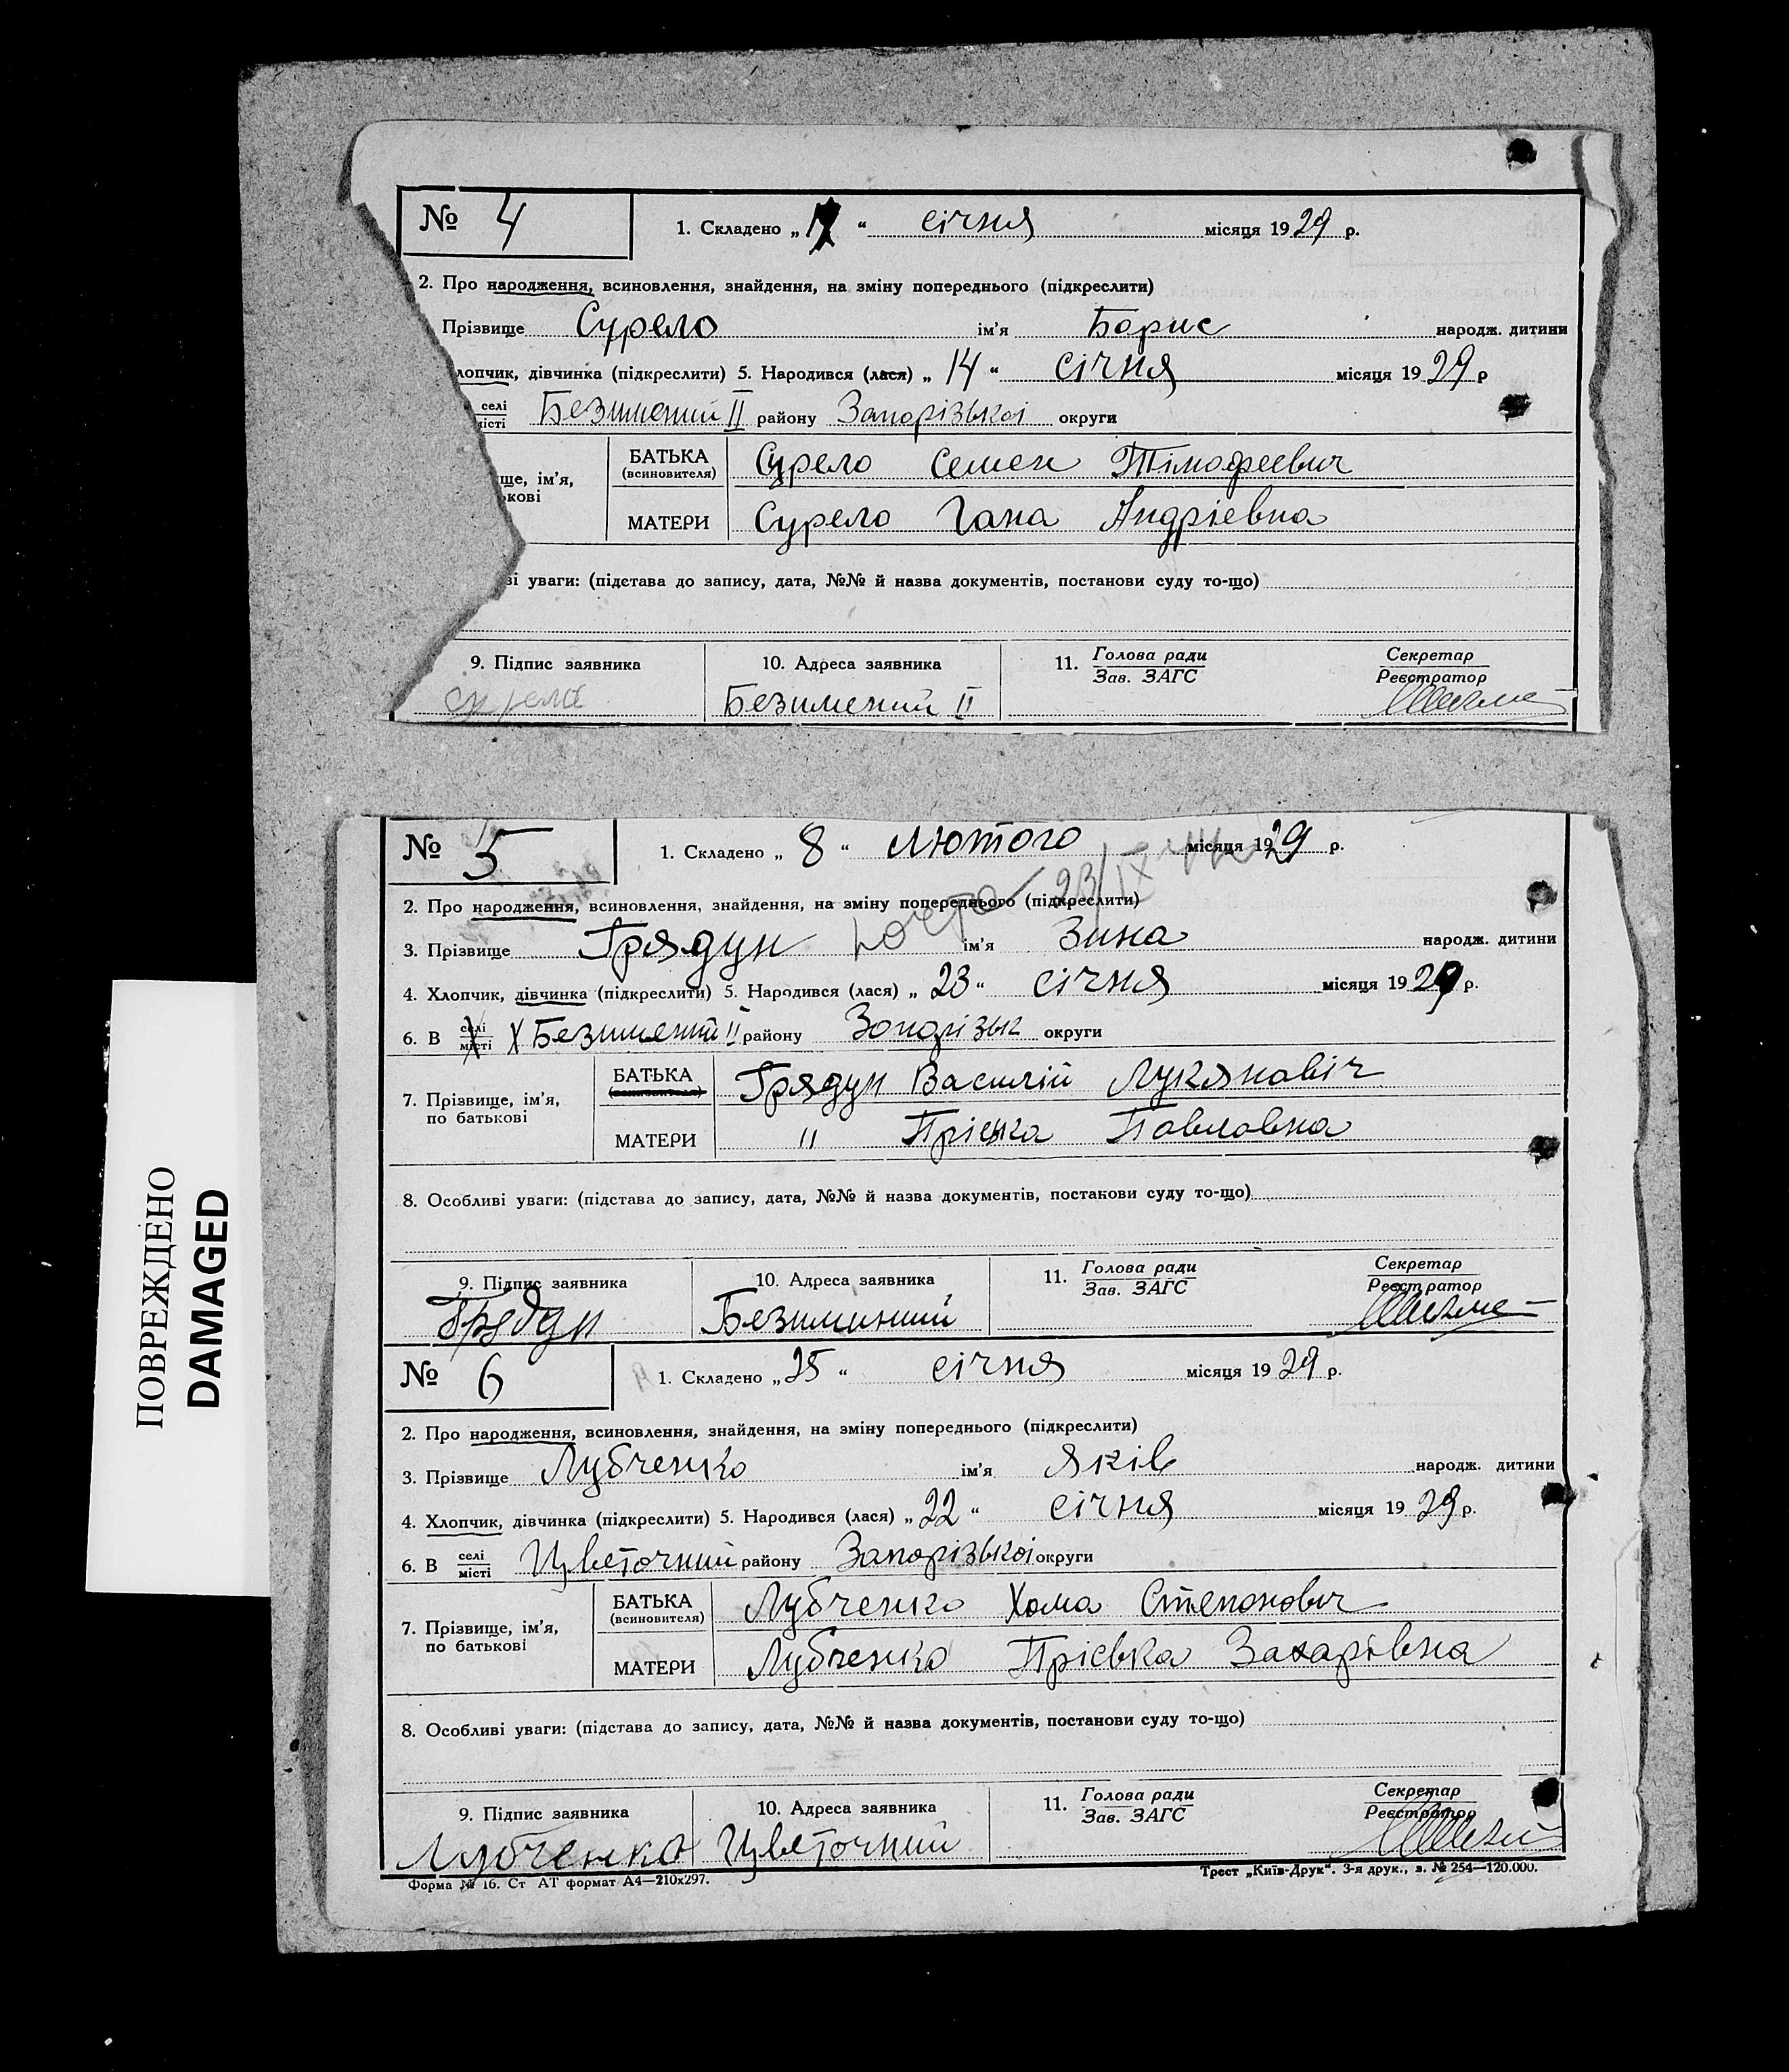 № 4
1. Складено „ “ січня місяця 1929 р.
2. Про народження, всиновлення, знайдення, на зміну попереднього (підкреслити)
Прізвище Сурело ім'я Борис народж. дитини
лопчик, дівчинка (підкреслити) 5. Народився (лася) „ 14 “ січня місяця 1929 р
селі
місті Безименний II району Запорізької округи
ще, ім'я,
ькові
БАТЬКА
(всиновителя) Сурело Семен Тімофеевич
МАТЕРИ Сурело Гана Андріевна
ві уваги: (підстава до запису, дата, №№ й назва документів, постанови суду то-що)
9. Підпис заявника
Сурело
10. Адреса заявника
Безименний II
11. Голова ради
Зав. ЗАГС
Секретар
Реєстратор
№ 5
1. Складено „ 8 “ лютого місяця 1929 р.
23/IX
2. Про народження, всиновлення, знайдення, на зміну попереднього (підкреслити)
3. Прізвище Грядун ім'я Зина народж. дитини
4. Хлопчик, дівчинка (підкреслити) 5. Народився (лася) „ 23 “ січня місяця 1929 р.
6. В селі
місті Х Безименний II району Запорізьк округи
7. Прізвище, ім'я,
по батькові
БАТЬКА Грядун Василій Лукянавіч
МАТЕРИ " Пріська Павловна
8. Особливі уваги: (підстава до запису, дата, №№ й назва документів, постанови суду то-що)
9. Підпис заявника
Грядун
10. Адреса заявника
Безиминний
11. Голова ради
Зав. ЗАГС
Секретар
Реєстратор
№ 6
1. Складено „ 25 “ січня місяця 1929 р.
2. Про народження, всиновлення, знайдення, на зміну попереднього (підкреслити)
3. Прізвище Лубченко ім'я Яків народж. дитини
4. Хлопчик, дівчинка (підкреслити) 5. Народився (лася) „ 22 “ січня місяця 1929 р.
6. В селі
місті Цветочний району Запорізької округи
7. Прізвище, ім'я,
по батькові
БАТЬКА
(всиновителя) Лубченко Хома Степанович
МАТЕРИ Лубченко Пріська Захарівна
8. Особливі уваги: (підстава до запису, дата, №№ й назва документів, постанови суду то-що)
9. Підпис заявника
Лубченко
10. Адреса заявника
Цветочний
11. Голова ради
Зав. ЗАГС
Секретар
Реєстратор
Форма № 16. Ст АТ формат А4—210х297.
Трест „Київ-Друк“. 3-я друк., з. № 254—120.000.
ПОВРЕЖДЕНО
DAMAGED